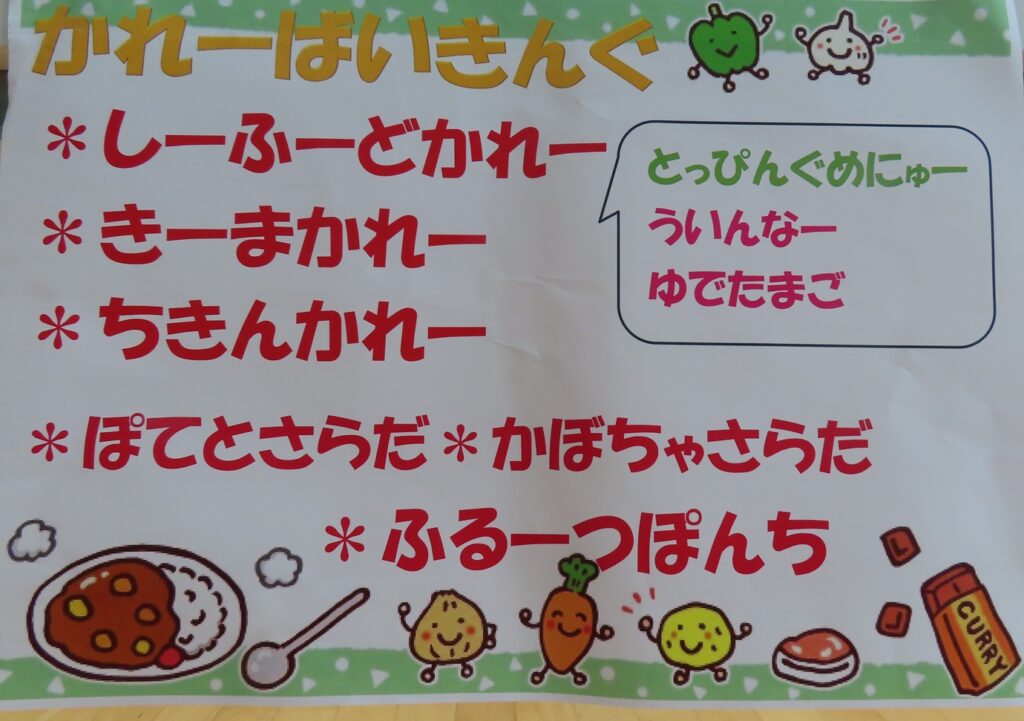 かれーばいきんぐ
＊しーふーどかれー
＊きーまかれー
＊ちきんかれー
とっぴんぐめにゅー
ういんなー
ゆでたまご
＊ぽてとさらだ ＊かぼちゃさらだ
＊ふるーつぽんち
CURRY